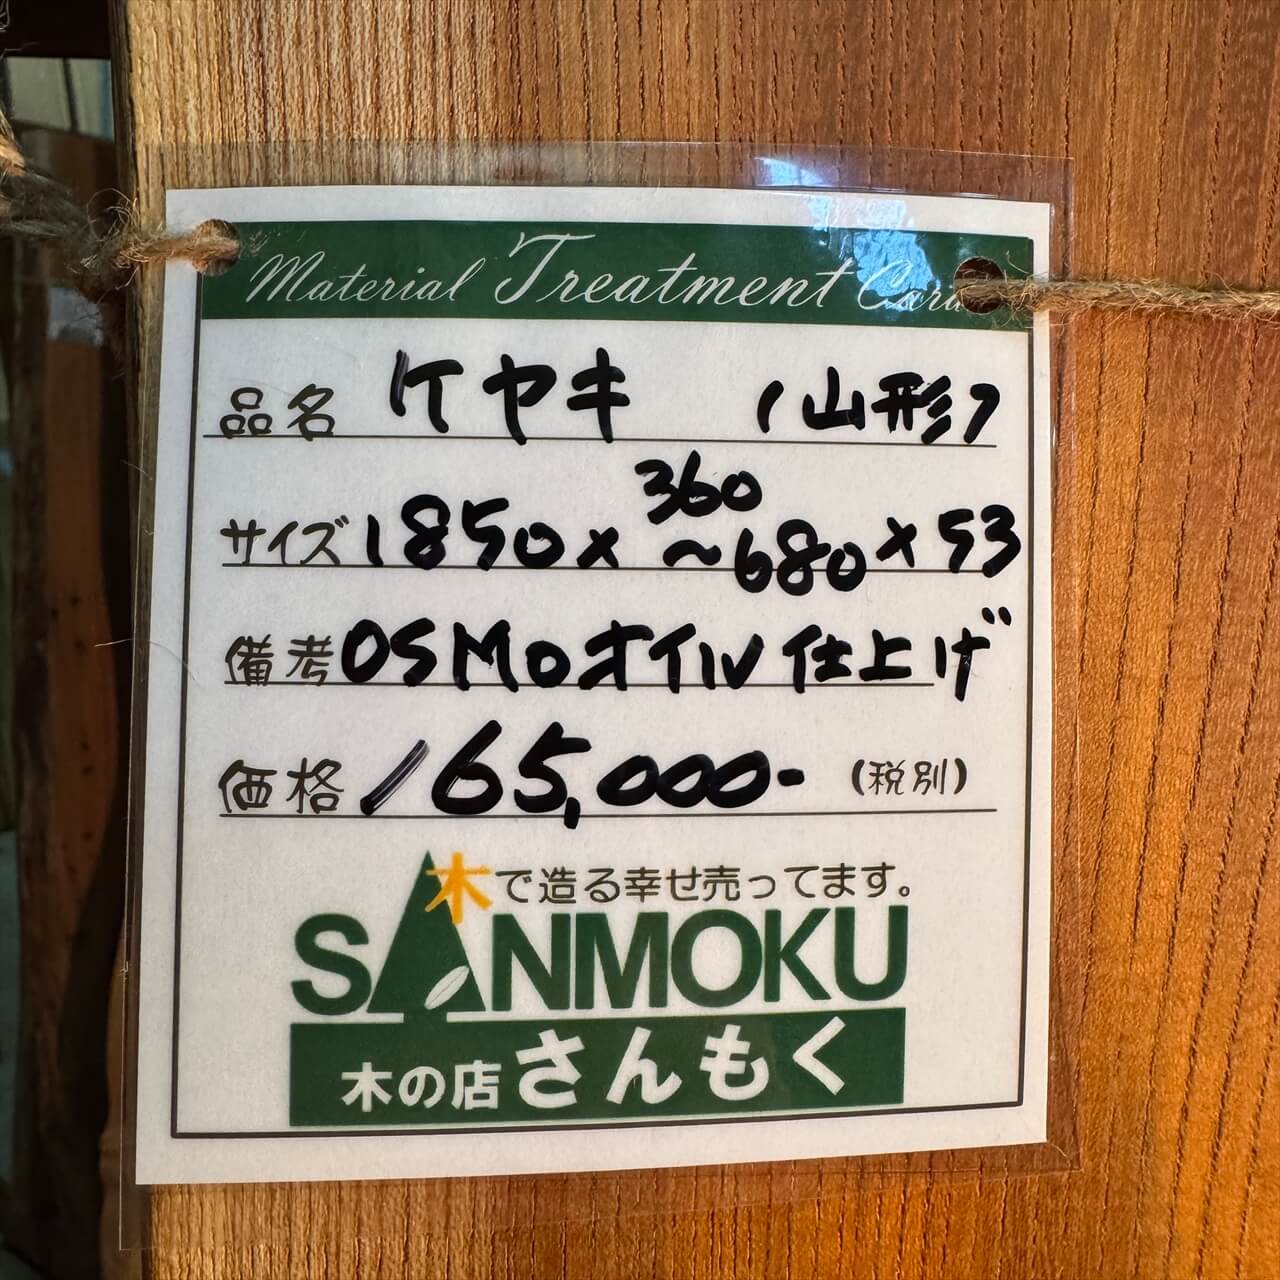 Material Treatment Card
品名 ケヤキ (山形)
サイズ 1850×360~680×53
備考 OSMOオイル仕上げ
価格 165,000- (税別)
木で造る幸せ売ってます。
SANMOKU
木の店 さんもく